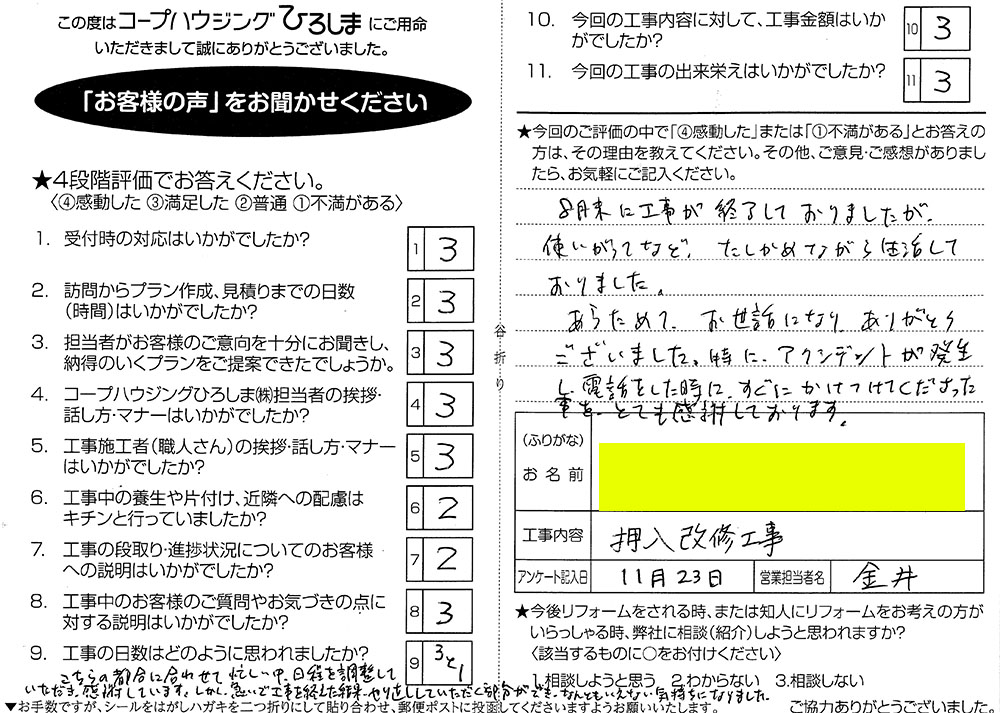 この度はコープハウジングひろしまにご用命
いただきまして誠にありがとうございました。
「お客様の声」をお聞かせください
★4段階評価でお答えください。
〈④感動した ③満足した ②普通 ①不満がある〉
1. 受付時の対応はいかがでしたか?
1 3
2. 訪問からプラン作成、見積りまでの日数
(時間)はいかがでしたか?
2 3
3. 担当者がお客様のご意向を十分にお聞きし、
納得のいくプランをご提案できたでしょうか。
3 3
4. コープハウジングひろしま㈱担当者の挨拶・
話し方・マナーはいかがでしたか?
4 3
5. 工事施工者(職人さん)の挨拶・話し方・マナー
はいかがでしたか?
5 3
6. 工事中の養生や片付け、近隣への配慮は
キチンと行っていましたか?
6 2
7. 工事の段取り・進捗状況についてのお客様
への説明はいかがでしたか?
7 2
8. 工事中のお客様のご質問やお気づきの点に
対する説明はいかがでしたか?
8 3
9. 工事の日数はどのように思われましたか?
9 3と1
こちらの都合に合わせて忙しい中、日程を調整して
いただき、感謝しています。しかし、急いで工事を終えた結果、やり直ししていただく部分ができ、なんともいえない気持ちになりました。
▼お手数ですが、シールをはがしハガキを二つ折りにして貼り合わせ、郵便ポストに投函してくださいますようお願いいたします。
谷折り
10. 今回の工事内容に対して、工事金額はいか
がでしたか?
10 3
11. 今回の工事の出来栄えはいかがでしたか?
11 3
★今回のご評価の中で「④感動した」または「①不満がある」とお答えの
方は、その理由を教えてください。その他、ご意見・ご感想がありまし
たら、お気軽にご記入ください。
8月末に工事が終了しておりましたが、
使いがってなど、たしかめながら生活して
おりました。
あらためて、お世話になり、ありがとう
ございました。特に、アクシデントが発生
し電話をした時に、すぐにかけつけてくださった
事を、とても感謝しております。
(ふりがな)
お名前
工事内容 押入改修工事
アンケート記入日 11月23日 営業担当者名 金井
★今後リフォームをされる時、または知人にリフォームをお考えの方が
いらっしゃる時、弊社に相談(紹介)しようと思われますか?
〈該当するものに○をお付けください〉
1.相談しようと思う 2.わからない 3.相談しない
ご協力ありがとうございました。